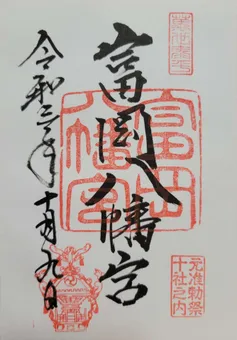 富岡八幡宮
令和三年十月九日
富岡
八幡宮
元准勅祭
十社之内